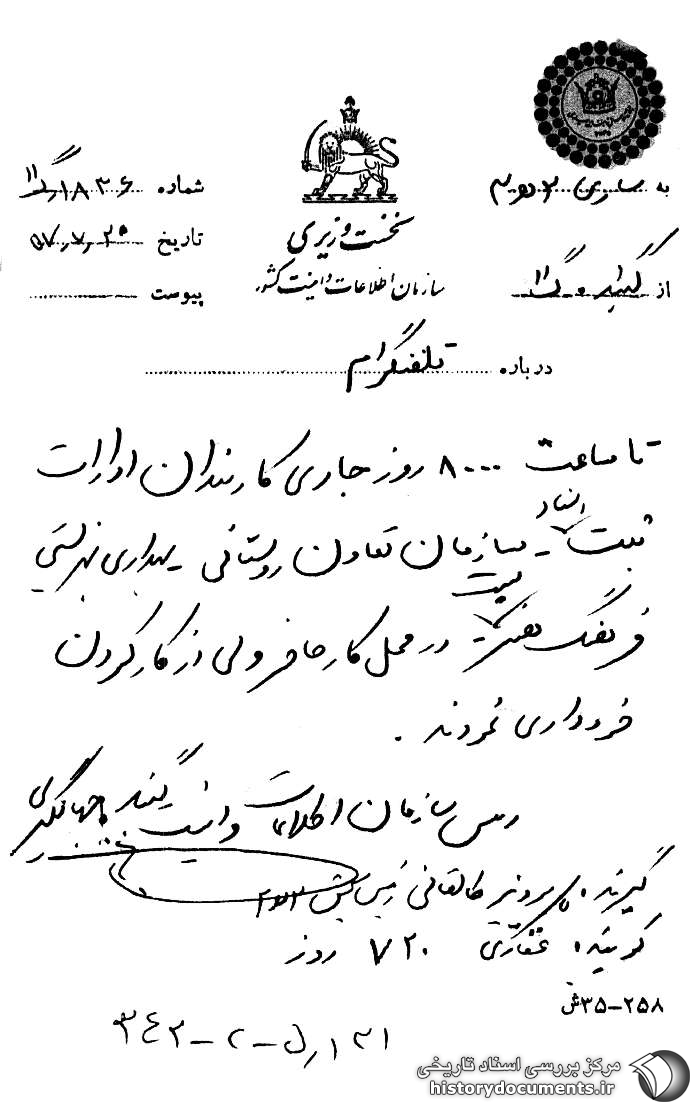 به ساری ۳ ه‍ ۳
شماره ۱۸۳۶/گ ۱۱
نخست وزیری
تاریخ ۵۷,۷,۲۵
از گنبد گ ۱۱
سازمان اطلاعات و امنیت کشور
پیوست
درباره تلفنگرام
تا ساعت ۸۰۰۰ روز جاری کارمندان ادارات
ثبت اسناد - سازمان تعاون روستائی - بهداری بهزیستی
فرهنگ هنر - پست در محل کار حاضر ولی از کار کردن
خودداری نمودند .
رئیس سازمان اطلاعات و امنیت گنبد جهانگیری
گیرنده پرویز طالقانی رئیس بخش ۳۳۲
گوینده غفاری ۷۲۰ روز
۲۵۸-۳۵ش
۱۳۱رل-۲-۳۴۲
مرکز بررسی اسناد تاریخی
historydocuments.ir